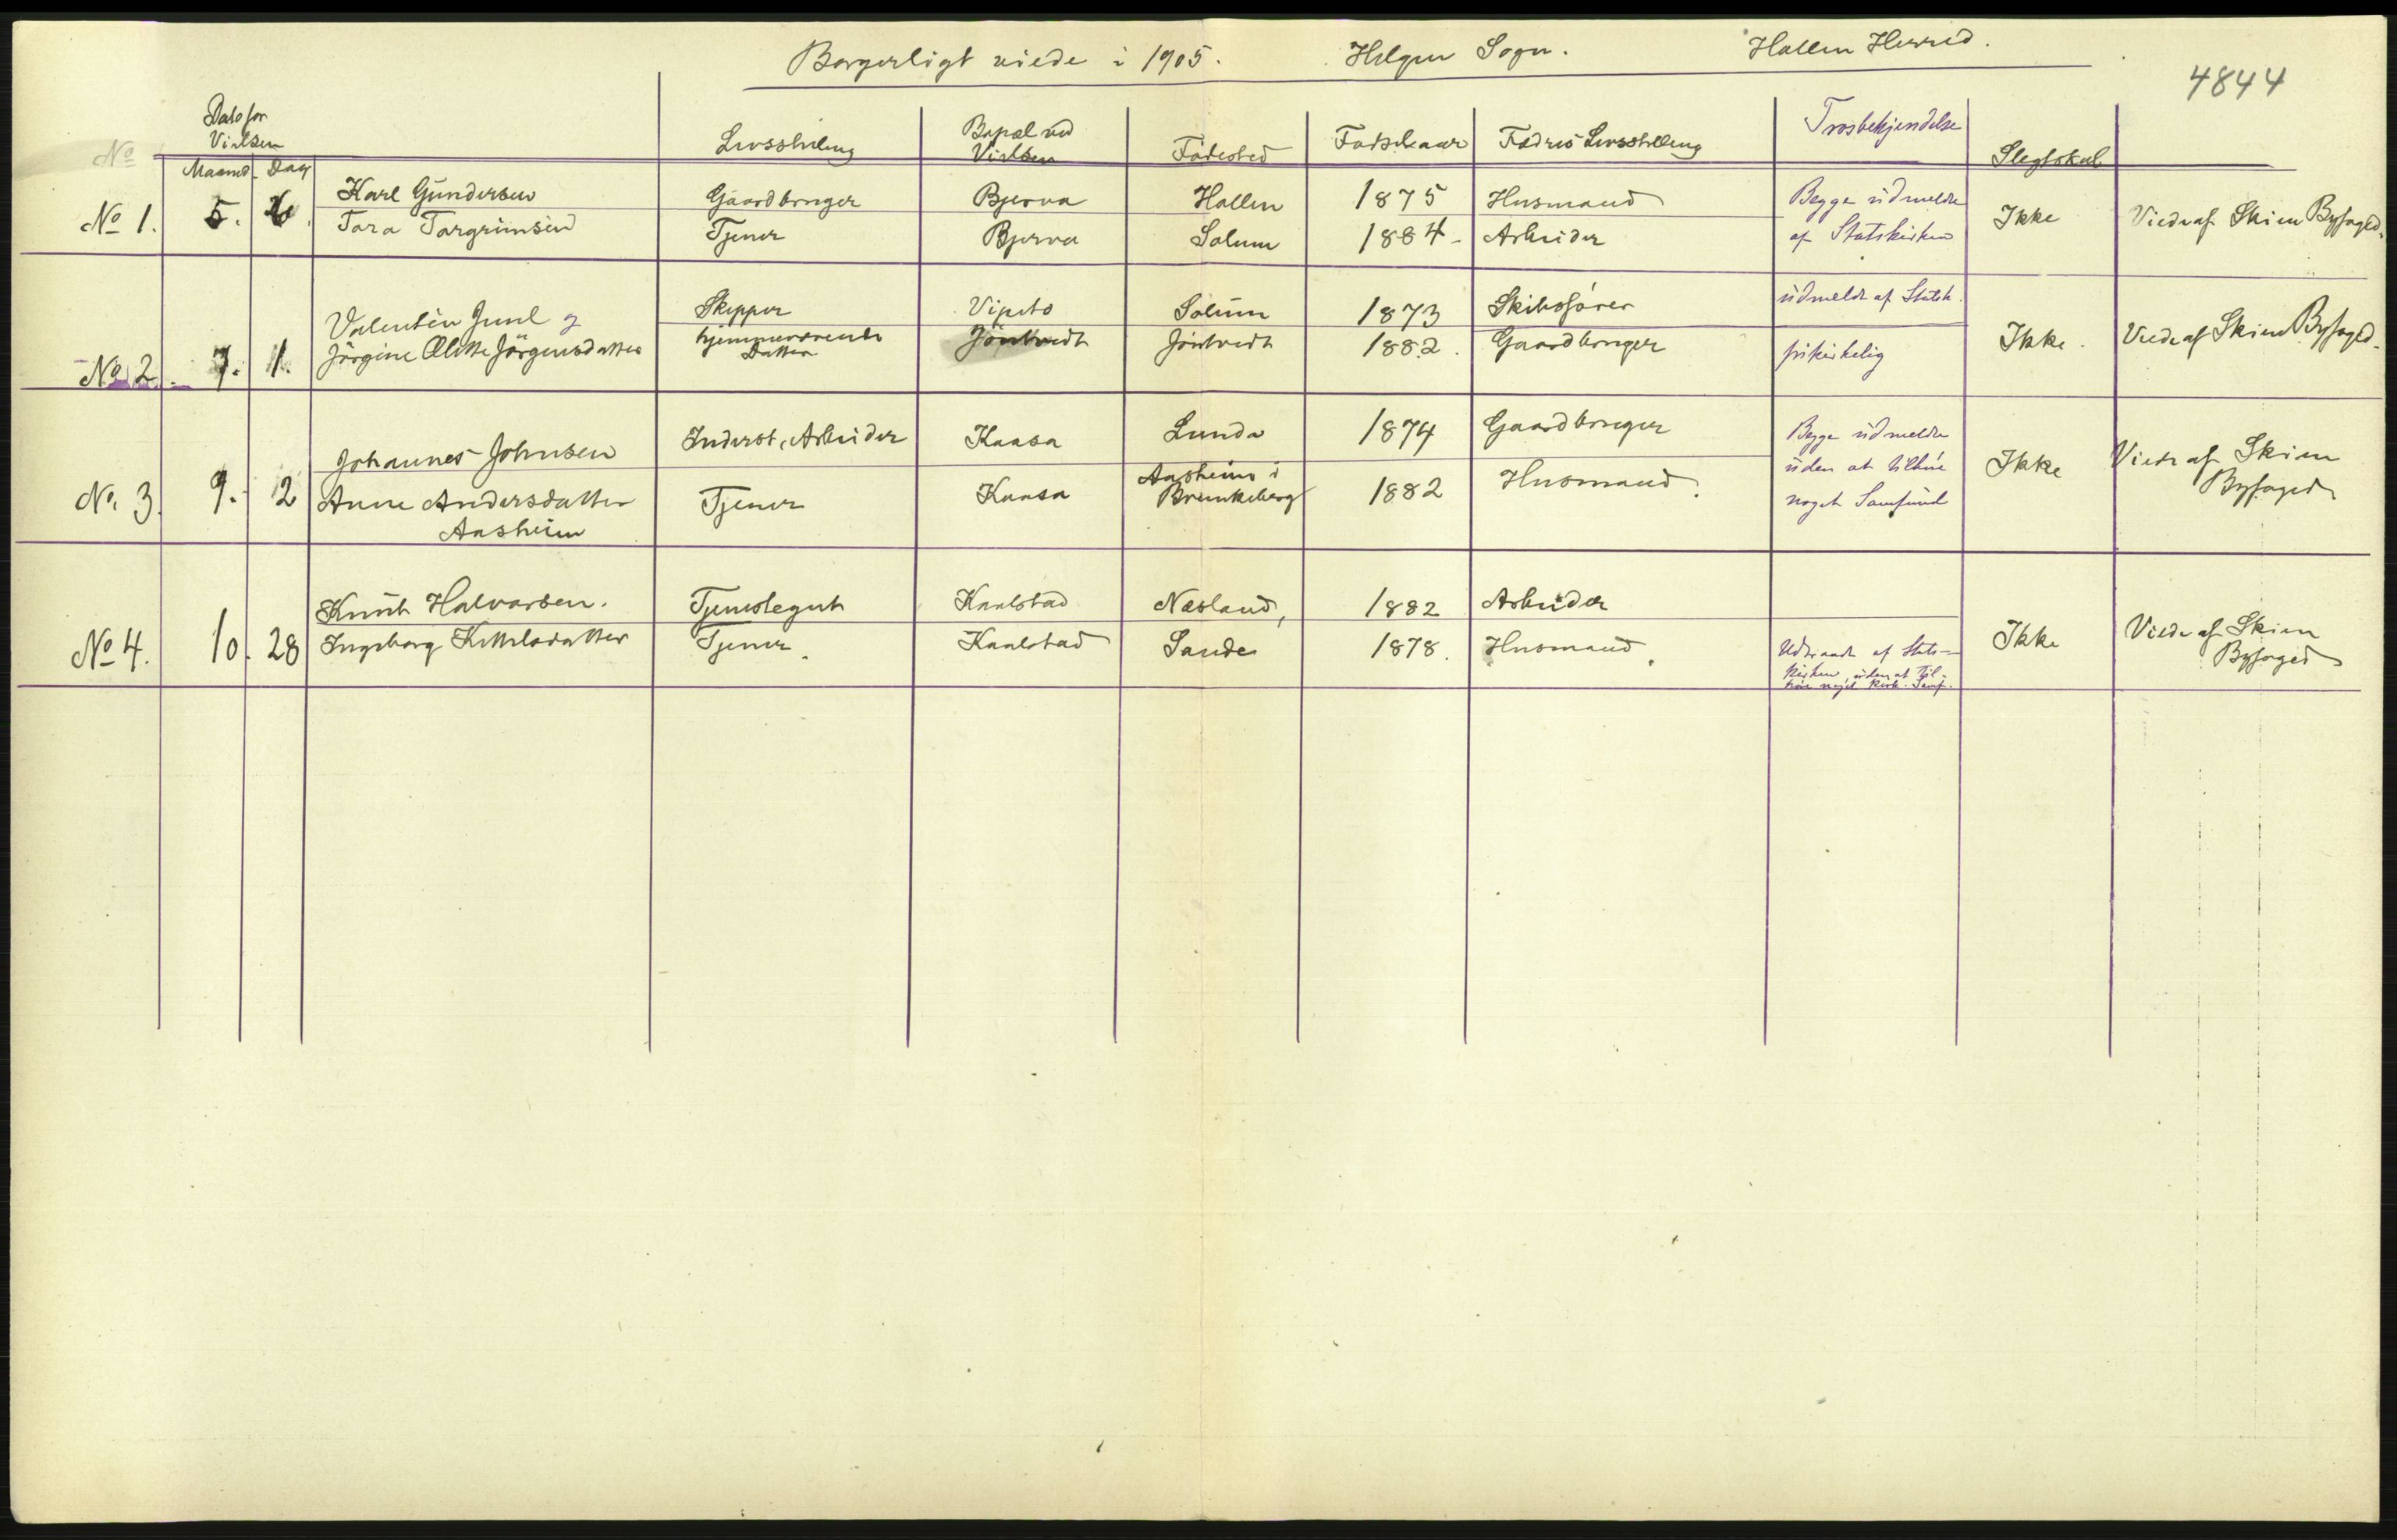 Borgerligt viede i 1905. Helgen Sogn. Hollen Herred.
4844
No Dato for Vielsen Livsstilling Bopæl ved Vielsen Födested Födselsaar Fædres Livsstilling Trosbekjendelse Slegtskab
Maaned Dag
No 1. 5. Karl Gundersen Gaardbruger Bjerva Hollen 1875 Husmand Begge udmeldte Ikke Viede af Skien Byfoged.
Tora Torgrimsen Tjener Bjerva Solum 1884 Arbeider af Statskirken
No 2. 7. 1. Valentin Juul og Skipper Vipeto Solum 1873 Skibsförer udmeldt af Statsk. Ikke. Viede af Skien Byfoged.
Jörgine Olette Jörgensdatter hjemmeværende Datter Jöntvedt Jöntvedt 1882. Gaardbruger frikirkelig
No. 3. 9. 2 Johannes Johnsen Inderst, Arbeider Kaasa Lunde 1874 Gaardbruger Begge udmeldte Ikke Viede af Skien
Anne Andersdatter Tjener Kaasa Aasheim i Brunkeberg 1882 Husmand. uden at tilhöre Byfoged
Aasheim noget Samfund
No 4. 10. 28 Knut Halvorsen. Tjenestegut Kaalstad Næsland, 1882 Arbeider Ikke Viede af Skien
Ingeborg Kittelsdatter Tjener. Kaalstad Sande 1878. Husmand. Udtraadt af Stats- Byfoged
kirken, uden at til-
höre noget kirk. Samf.